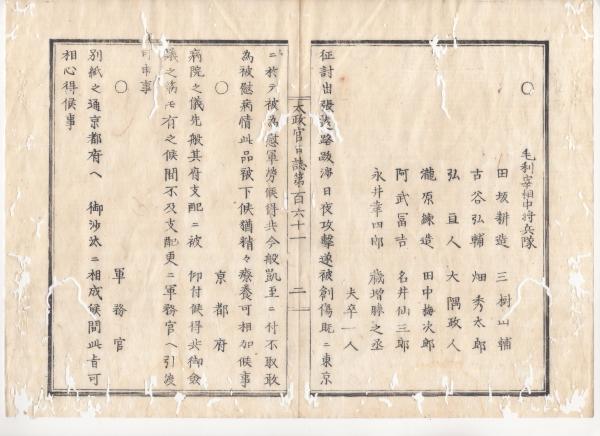 ○
毛利宰相中将兵隊
田坂耕造 三樹山輔
古谷弘輔 畑秀太郎
弘亘人 大隅政人
瀧原練造 田中梅次郎
阿武冨吉 名井仙三郎
永井幸四郎 藏増勝之丞
夫卒一人
征討出張遠路跋渉日夜攻撃遂被創傷既ニ東京
太政官日誌第百六十一 二
ニ於テ被為慰軍労候得共今般凱至ニ付不取敢
為被慰病情此品被下候猶精々療養可相加候事
○ 京都府
病院之儀先般其府支配ニ被 仰付候得共御僉
議之筋モ有之候間不及支配更ニ軍務官ヘ引渡
可申事
○ 軍務官
別紙之通京都府ヘ 御沙汰ニ相成候間此旨可
相心得候事